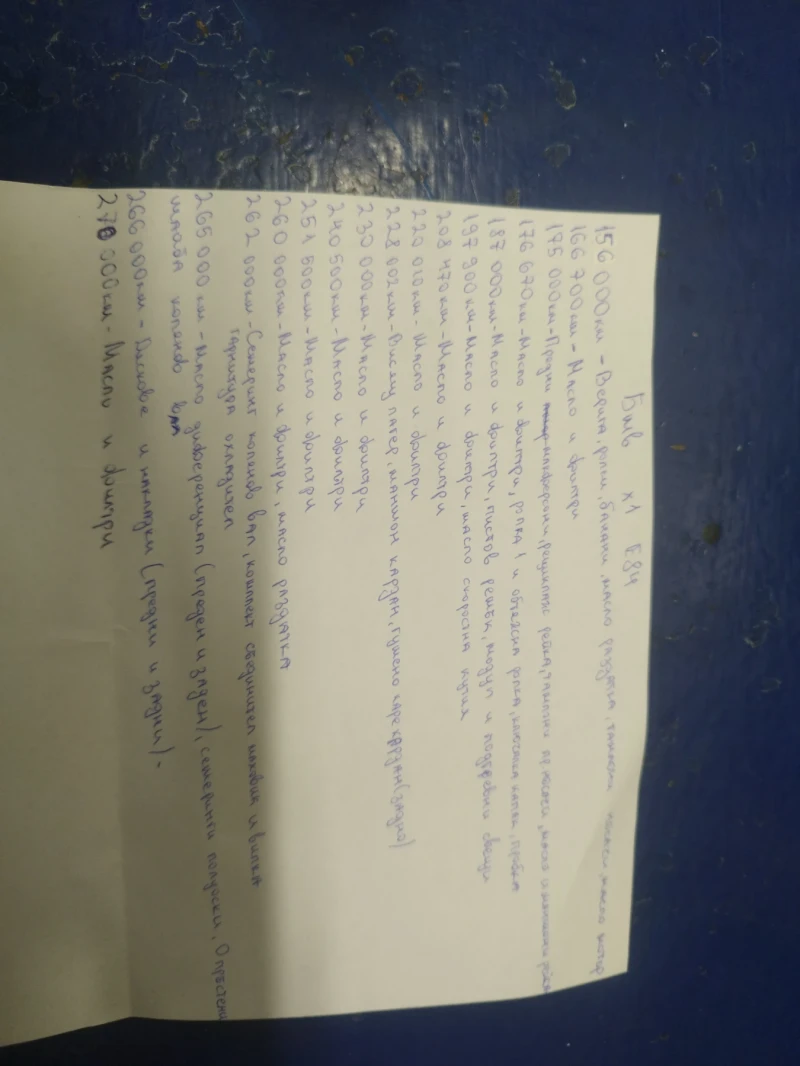 Бмв х1 Е84
156 000км - Верига, ролки, балани, масло раздатка, тампони носачи, масло мотор
166 700км - Масло и филтри
175 000км - Предни макферсони, рециклаж рейка, тампони пр. носачи, маска и маншони рейка
176 670км - Масло и филтри, ролка 1 и обтяжна ролка, ключалка капак, пробка
187 000км - Масло и филтри, пистов ремък, модул и подгревни свещи
197 900км - Масло и филтри, масло скоростна кутия
208 470км - Масло и филтри
220 010км - Масло и филтри
228 002км - Висящ лагер, маншон кардан, гумено каре кардан (задно)
230 000км - Масло и филтри
240 500км - Масло и филтри
251 500км - Масло и филтри
260 000км - Масло и филтри, масло раздатка
262 000км - Семеринг колянов вал, комплект съединител маховик и вилка
гарнитура охладител
265 000км - Масло диференциал (преден и заден), семеринги полуоски, О пръстени
шайба колянов вал
266 000км - Дискове и накладки (предни и задни).
270 000км - Масло и филтри